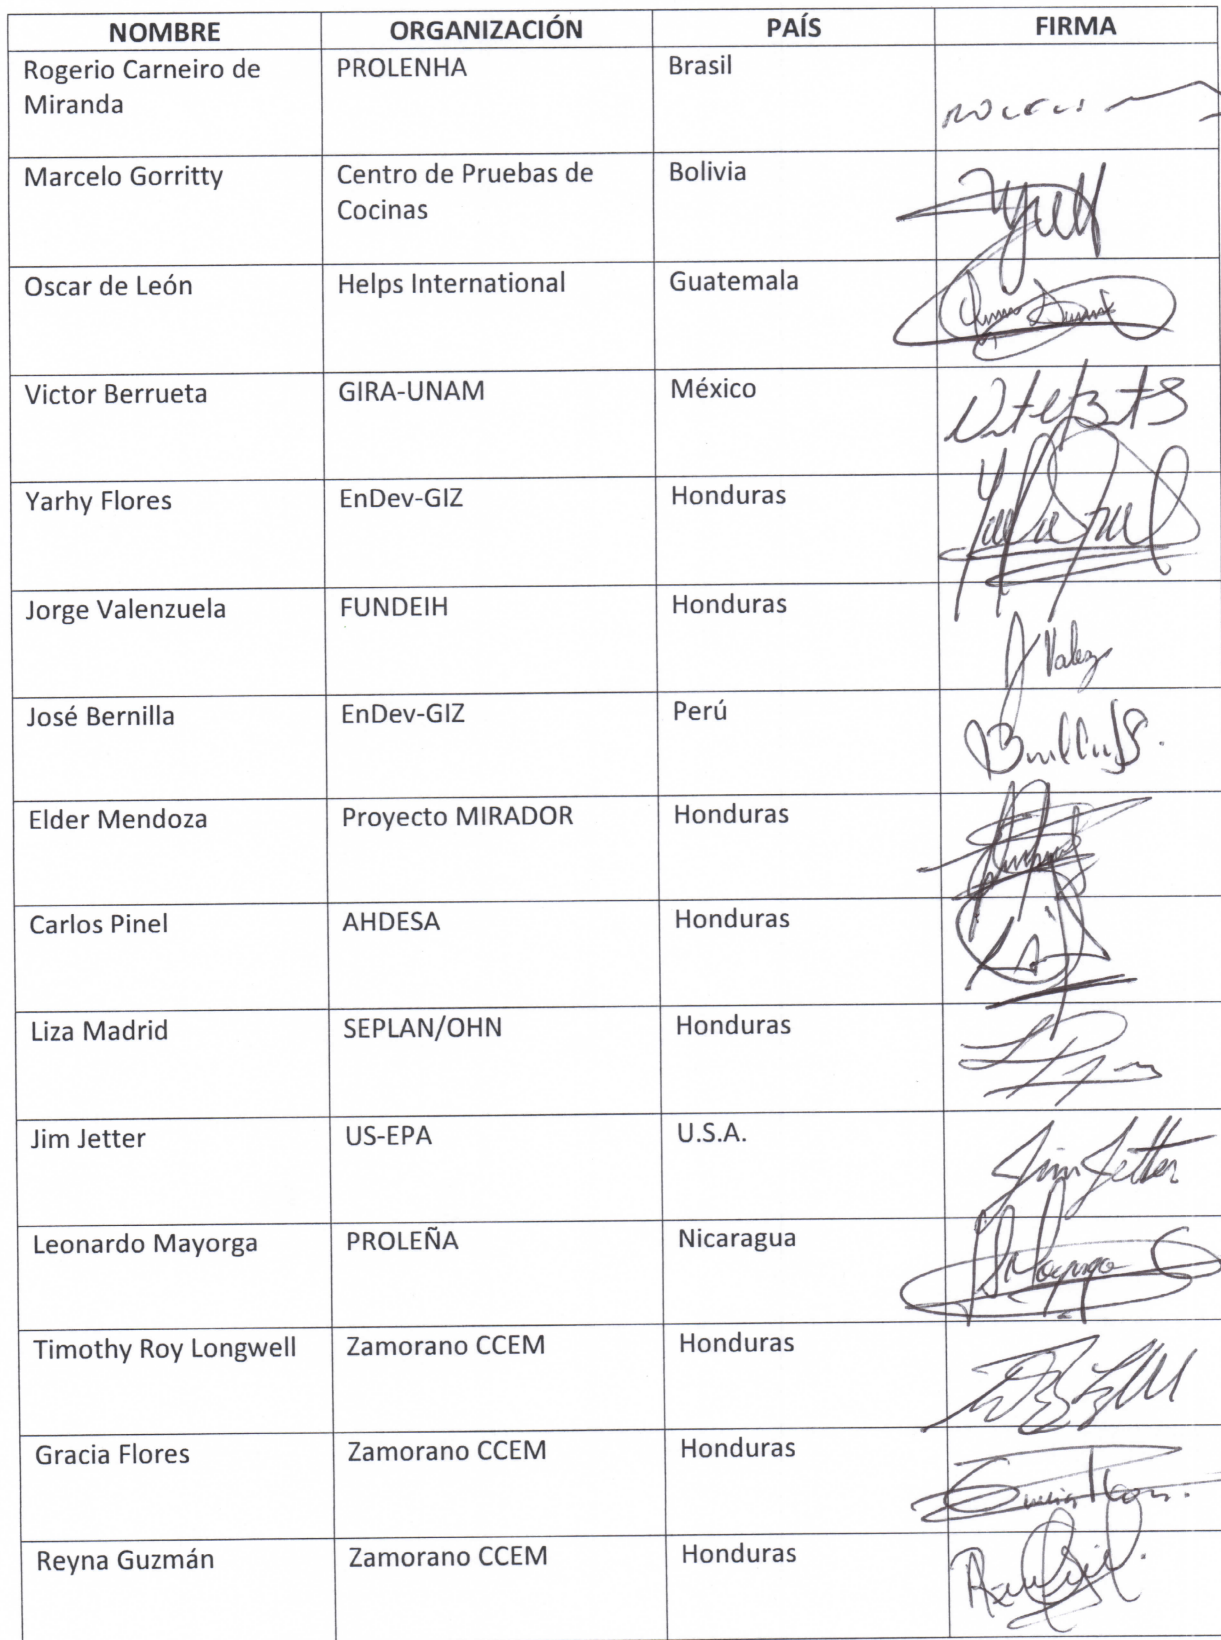 NOMBRE ORGANIZACIÓN PAÍS FIRMA
Rogerio Carneiro de PROLENHA Brasil
Miranda
Marcelo Gorritty Centro de Pruebas de Bolivia
Cocinas
Oscar de León Helps International Guatemala
Victor Berrueta GIRA-UNAM México
Yarhy Flores EnDev-GIZ Honduras
Jorge Valenzuela FUNDEIH Honduras
José Bernilla EnDev-GIZ Perú
Elder Mendoza Proyecto MIRADOR Honduras
Carlos Pinel AHDESA Honduras
Liza Madrid SEPLAN/OHN Honduras
Jim Jetter US-EPA U.S.A. Jim Jetter
Leonardo Mayorga PROLEÑA Nicaragua
Timothy Roy Longwell Zamorano CCEM Honduras
Gracia Flores Zamorano CCEM Honduras
Reyna Guzmán Zamorano CCEM Honduras